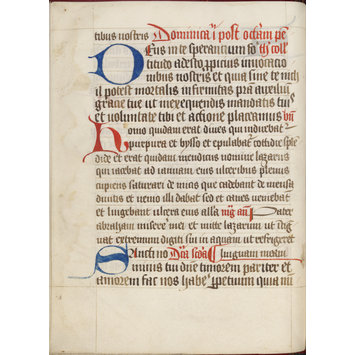 tibus nostris Dominica i post octam pe
Deus in te sperantium fo
titudo adesto ppicius inuocatio
nibus nostris et quia sine te nich
il potest mortalis infirmitas pra auxiliu
gracie tue ut in exequendis mandatis tuis
et voluntate tibi et actione placeamus
Homo quidam erat diues qui induebat
purpura et bysso et epulabat cottidie sple
dide et erat quidam mendicus nomine lazarus
qui iacebat ad ianuam eius ulceribus plenus
cupiens saturari de micis que cadebant de mensa
diuitis et nemo illi dabat sed et canes veniebat
et lingebant ulcera eius Pater
abraham miserere mei et mitte lazarum ut ting
uat extremum digiti sui in aquam ut refrigeret
Sancti no linguam meam
minis tui dne timorem pariter et
amorem fac nos habe ppetuum quia nu